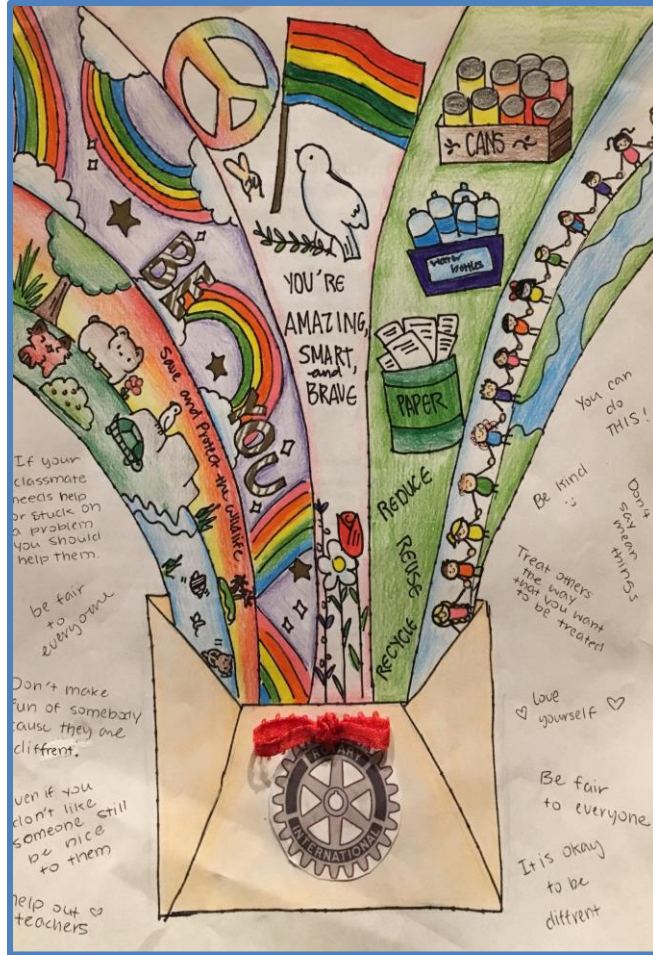 CANS
water
bottles
PAPER
BE
YOU
YOU'RE
AMAZING,
SMART,
and
BRAVE
Save and Protect the wildlife
REDUCE
REUSE
RECYCLE
If your
classmate
needs help
or stuck on
a problem
you should
help them.
be fair
to
everyone
Don't make
fun of somebody
cause they are
diffrent.
ven if you
don't like
someone still
be nice
to them
help out
teachers
You can
do
THIS!
Be kind
:)
Don't
say
mean
things
Treat others
the way
that you want
to be treated
love
yourself
Be fair
to everyone
It is okay
to be
diffrent
ROTARY
INTERNATIONAL